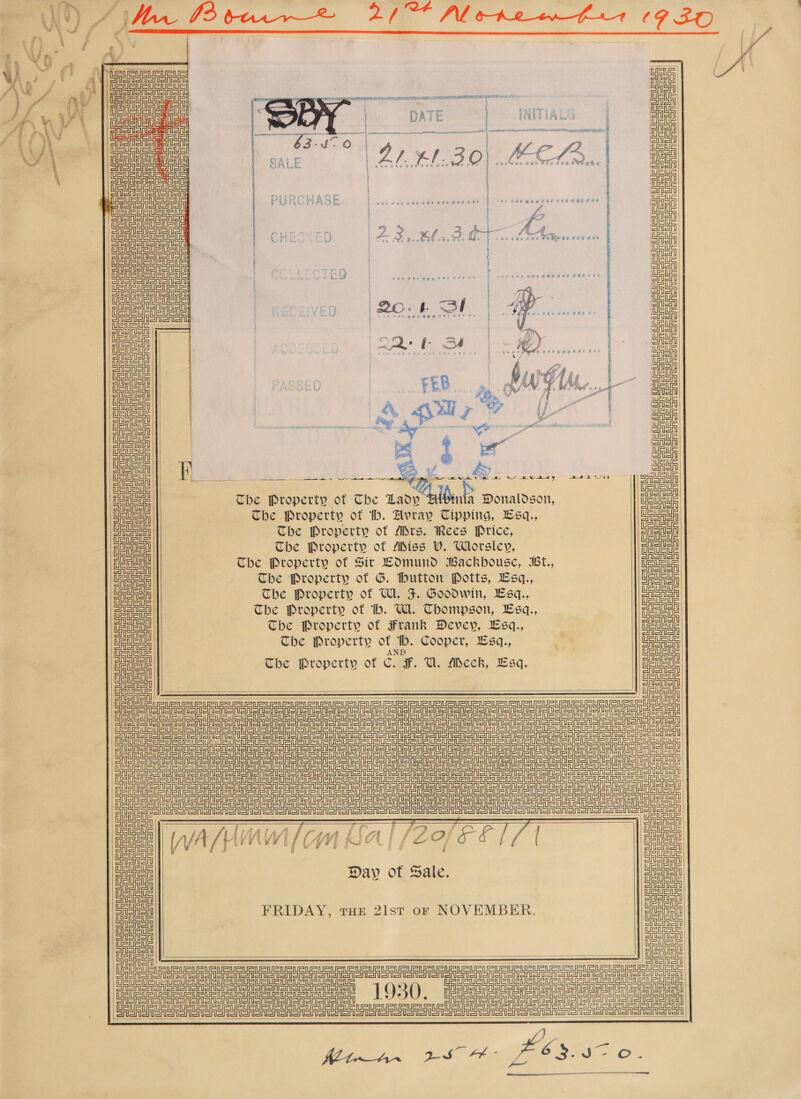 Mr Bourne 21st November 1930
SBY DATE INITIALS
63.5.0
SALE 21.XI.30 HCB.
PURCHASE
CHECKED 23.XI.30
COLLECTED
RECEIVED 20.1.31
ACCESSED 22.1.31
PASSED
17 FEB 1931
The Property of The Lady Albinia Donaldson,
The Property of H. Avray Tipping, Esq.,
The Property of Mrs. Rees Price,
The Property of Miss V. Worsley,
The Property of Sir Edmund Backhouse, Bt.,
The Property of G. Hutton Potts, Esq.,
The Property of W. F. Goodwin, Esq.,
The Property of H. W. Thompson, Esq.,
The Property of Frank Devey, Esq.,
The Property of H. Cooper, Esq.,
AND
The Property of C. F. U. Meek, Esq.
WA/HMM/CM/Sal/20/881/1
Day of Sale.
FRIDAY, THE 21ST OF NOVEMBER.
1930.
254. £63.5.0.